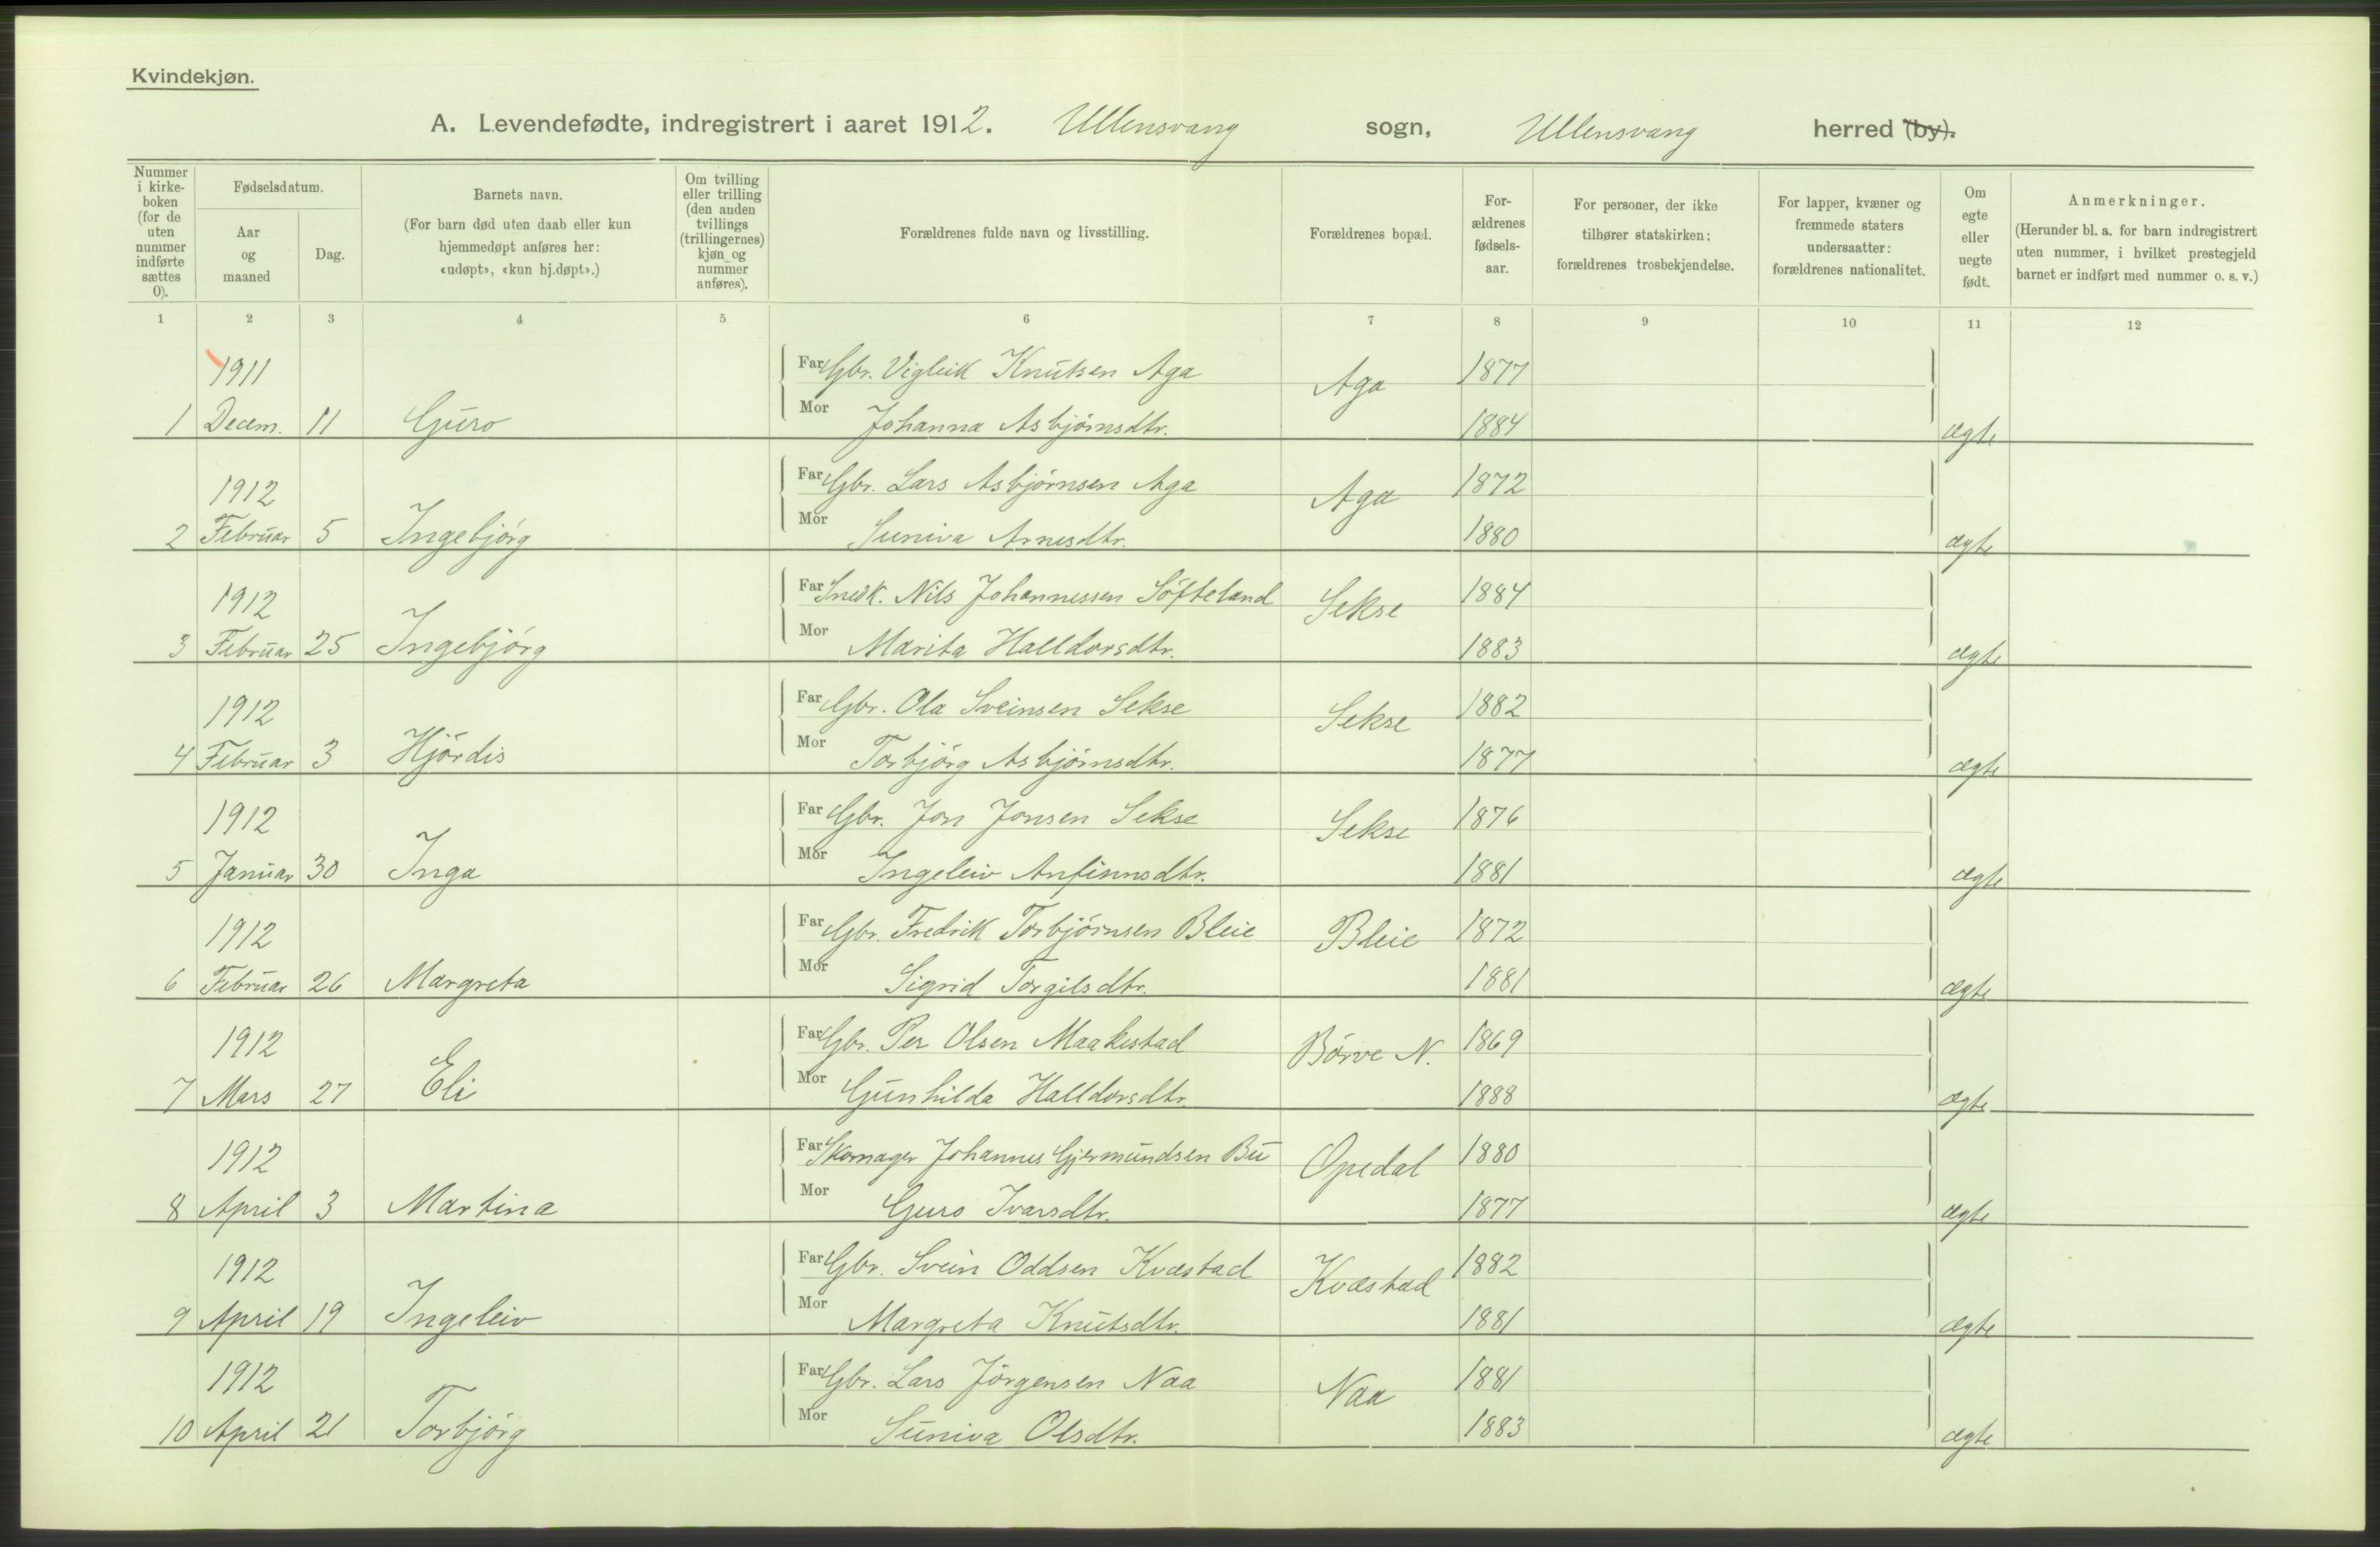 Kvindekjøn.
A. Levendefødte, indregistrert i aaret 1912. Ullensvang sogn, Ullensvang herred (by).
Nummer i kirke-boken (for de uten nummer indførte sættes 0).
Fødselsdatum.
Aar og maaned
Dag.
Barnets navn.
(For barn død uten daab eller kun hjemmedøpt anføres her: «udøpt», «kun hj.døpt».)
Om tvilling eller trilling (den anden tvillings (trillingernes) kjøn og nummer anføres).
Forældrenes fulde navn og livsstilling.
Forældrenes bopæl.
For-ældrenes fødsels-aar.
For personer, der ikke tilhører statskirken: forældrenes trosbekjendelse.
For lapper, kvæner og fremmede staters undersaatter: forældrenes nationalitet.
Om egte eller uegte født.
Anmerkninger.
(Herunder bl. a. for barn indregistrert uten nummer, i hvilket prestegjeld barnet er indført med nummer o. s. v.)
1 2 3 4 5 6 7 8 9 10 11 12
1911 Far Gbr. Vigleik Knutsen Aga Aga 1877
1 Decem. 11 Guro Mor Johanna Asbjørnsdtr. 1884 ægte
1912 Far Gbr. Lars Asbjørnsen Aga Aga 1872
2 Februar 5 Ingebjørg Mor Suniva Arnesdtr. 1880 ægte
1912 Far Snedk. Nils Johannessen Søfteland Sekse 1884
3 Februar 25 Ingebjørg Mor Marita Halldorsdtr. 1883 ægte
1912 Far Gbr. Ola Sveinsen Sekse Sekse 1882
4 Februar 3 Hjørdis Mor Torbjørg Asbjørnsdtr. 1877 ægte
1912 Far Gbr. Jon Jonsen Sekse Sekse 1876
5 Januar 30 Inga Mor Ingeleiv Anfinnsdtr. 1881 ægte
1912 Far Gbr. Fredrik Torbjørnsen Bleie Bleie 1872
6 Februar 26 Margreta Mor Sigrid Torgilsdtr. 1881 ægte
1912 Far Gbr. Per Olsen Maakestad Børve N. 1869
7 Mars 27 Eli Mor Gunhilda Halldorsdtr. 1888 ægte
1912 Far Skomager Johannes Gjermundsen Bu Opedal 1880
8 April 3 Martina Mor Guro Ivarsdtr. 1877 ægte
1912 Far Gbr. Svein Oddsen Kvæstad Kvæstad 1882
9 April 19 Ingeleiv Mor Margreta Knutsdtr. 1881 ægte
1912 Far Gbr. Lars Jørgensen Naa Naa 1881
10 April 21 Torbjørg Mor Suniva Olsdtr. 1883 ægte